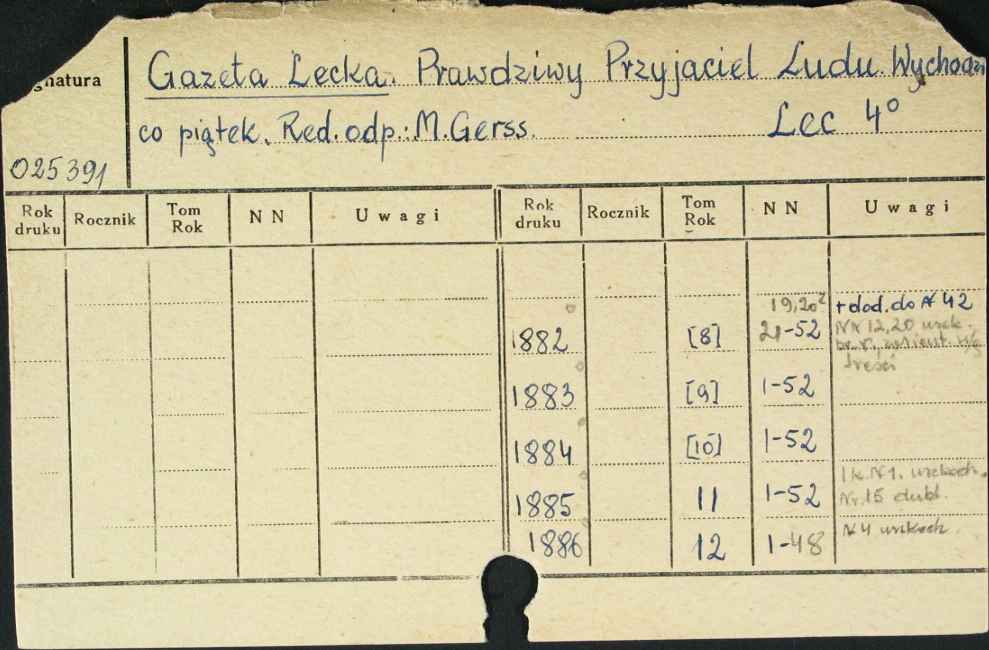 gnatura
Gazeta Lecka. Prawdziwy Przyjaciel Ludu. Wychodzi
co piątek. Red.odp.: M.Gerss. Lec 4°
025391
Rok druku Rocznik Tom Rok NN Uwagi Rok druku Rocznik Tom Rok NN Uwagi
19,20² +dod.do N 42
1882 [8] 21-52 Nr 12,20
treści
1883 [9] 1-52
1884 [10] 1-52
1885 11 1-52 Nr.15 dubl.
1886 12 1-48 N 4